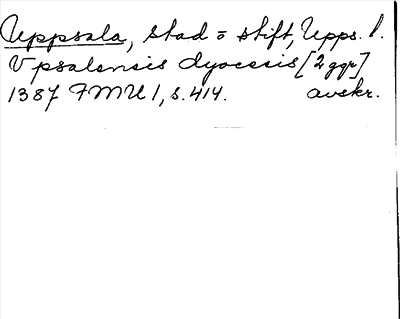 Uppsala, stad o stift, Upps. l.
Vpsalensis dyocesis [2 ggr]
1387 FMU 1, s. 414. avskr.